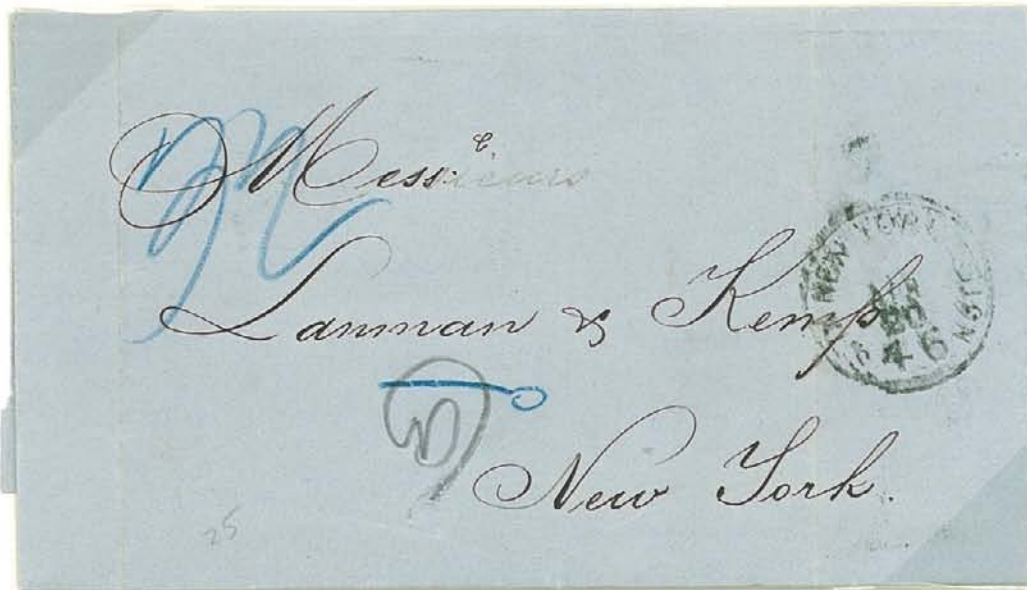 Messieurs
Lanman & Kemp
New York.
NEW YORK
46
25